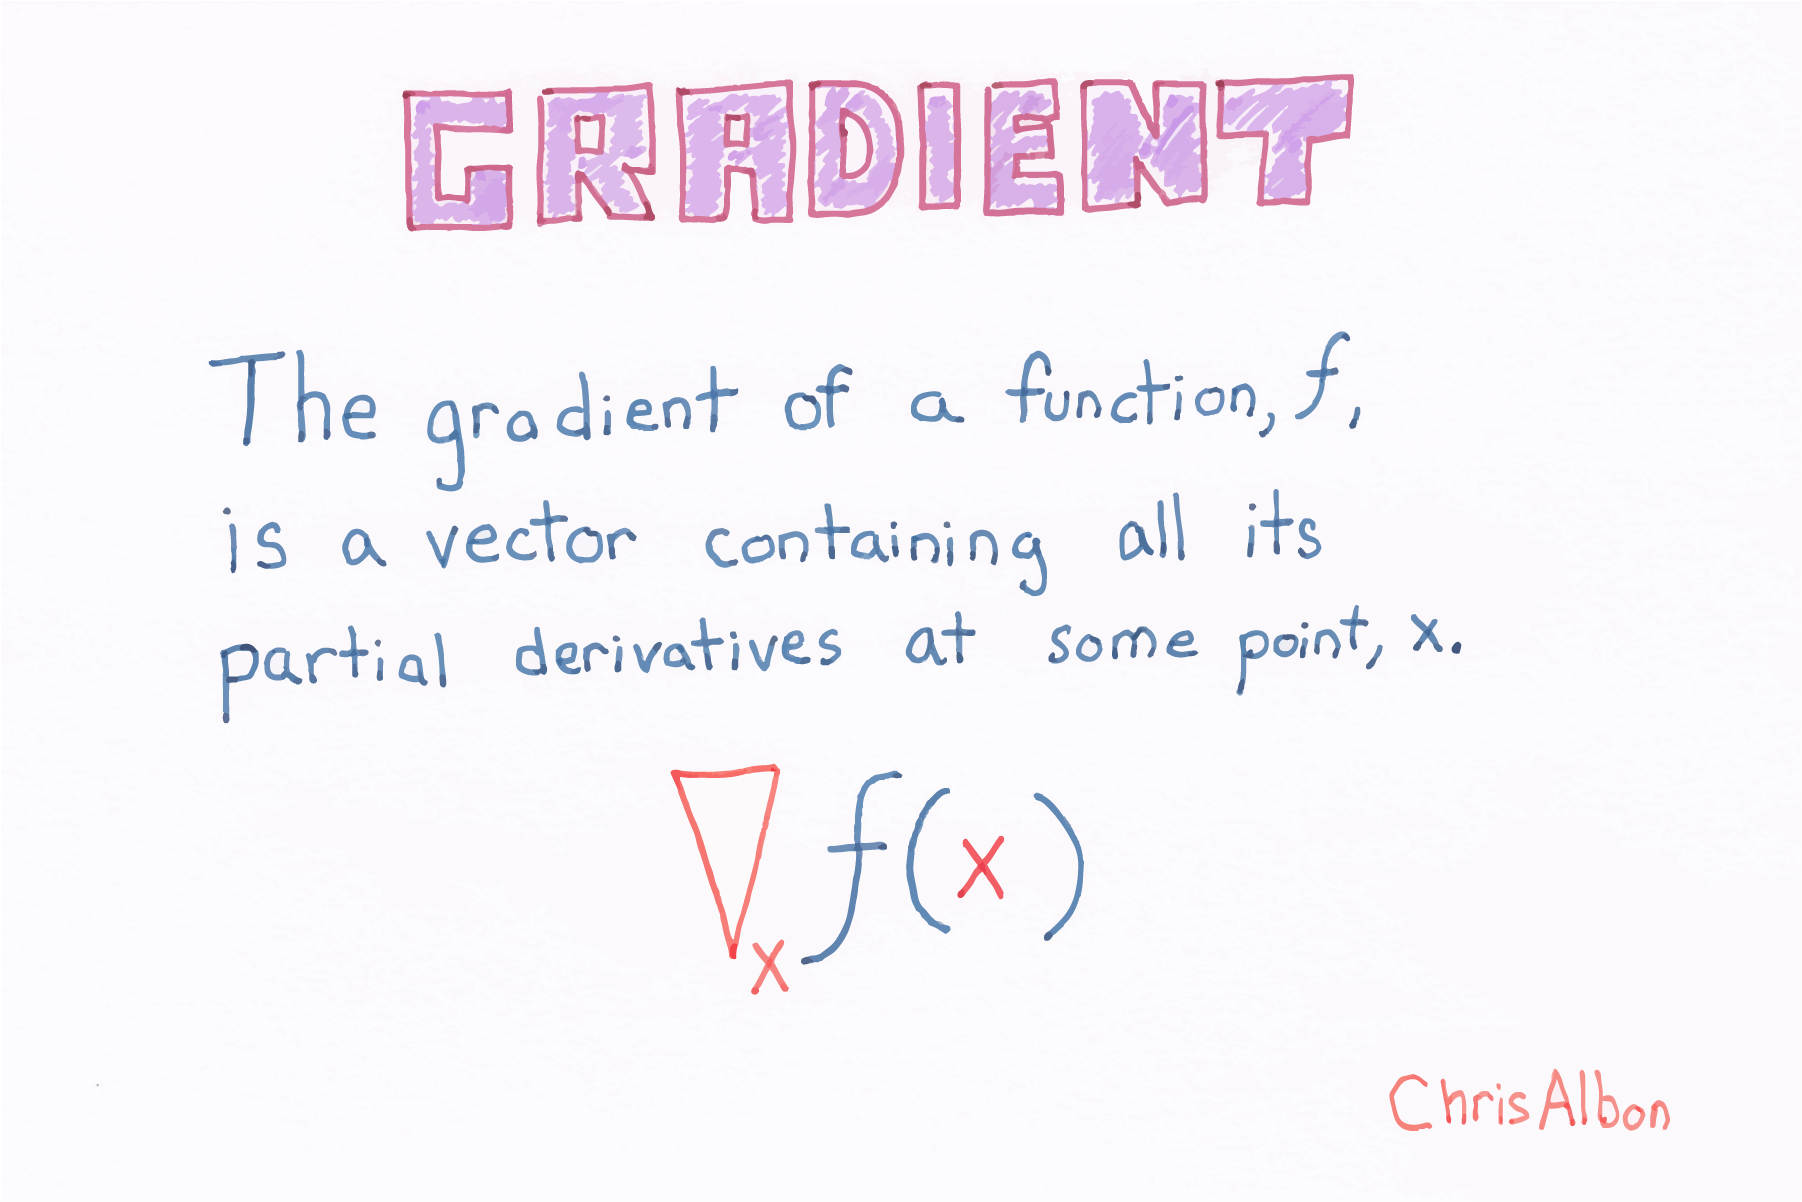 GRADIENT
The gradient of a function, f,
is a vector containing all its
partial derivatives at some point, x.
∇x f(x)
ChrisAlbon